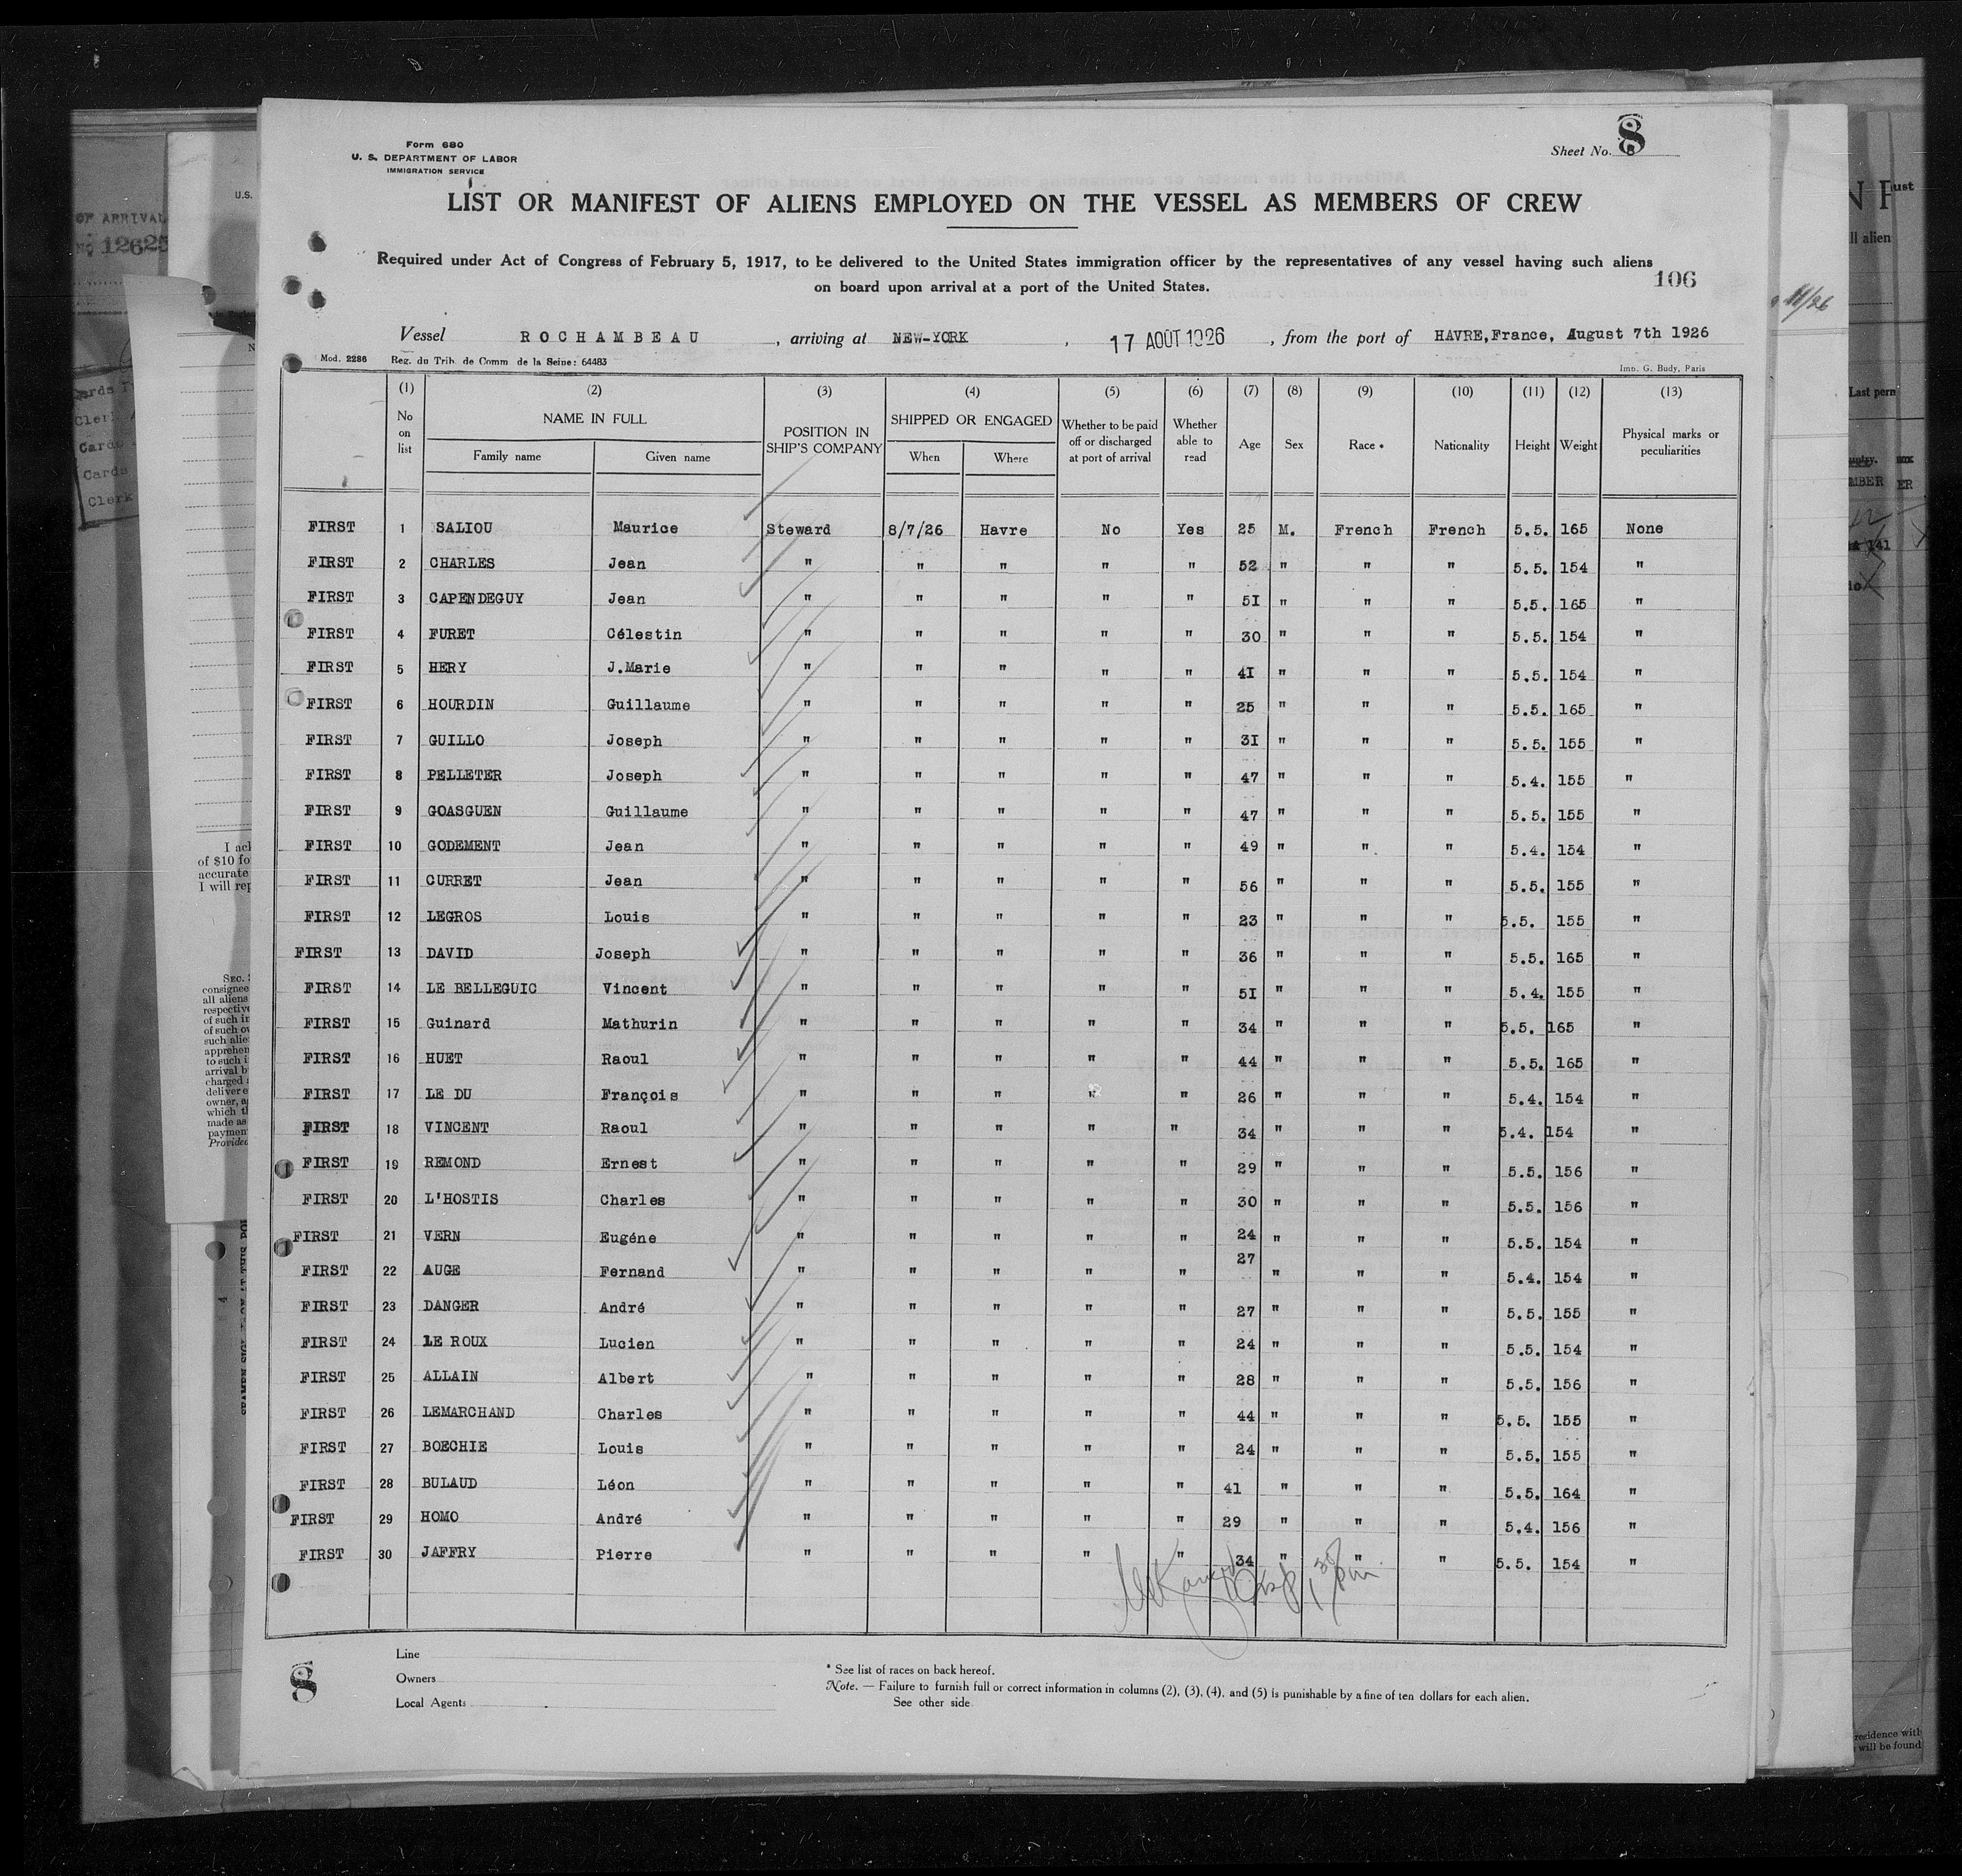 Form 680
U. S. DEPARTMENT OF LABOR
IMMIGRATION SERVICE
Sheet No. 8
LIST OR MANIFEST OF ALIENS EMPLOYED ON THE VESSEL AS MEMBERS OF CREW
Required under Act of Congress of February 5, 1917, to be delivered to the United States immigration officer by the representatives of any vessel having such aliens
on board upon arrival at a port of the United States.
106
Vessel ROCHAMBEAU, arriving at NEW-YORK, 17 AOUT 1926, from the port of HAVRE, France, August 7th 1926
Mod. 2286 Reg. du Trib. de Comm. de la Seine: 64483 Imp. G. Budy, Paris
(1) (2) (3) (4) (5) (6) (7) (8) (9) (10) (11) (12) (13)
No on list NAME IN FULL Family name Given name POSITION IN SHIP'S COMPANY SHIPPED OR ENGAGED When Where Whether to be paid off or discharged at port of arrival Whether able to read Age Sex Race * Nationality Height Weight Physical marks or peculiarities
FIRST 1 SALIOU Maurice Steward 8/7/26 Havre No Yes 25 M. French French 5.5. 165 None
FIRST 2 CHARLES Jean " " " " " 52 " " " 5.5. 154 "
FIRST 3 CAPENDEGUY Jean " " " " " 5I " " " 5.5. 165 "
FIRST 4 FURET Célestin " " " " " 30 " " " 5.5. 154 "
FIRST 5 HERY J.Marie " " " " " 4I " " " 5.5. 154 "
FIRST 6 HOURDIN Guillaume " " " " " 25 " " " 5.5. 165 "
FIRST 7 GUILLO Joseph " " " " " 3I " " " 5.5. 155 "
FIRST 8 PELLETER Joseph " " " " " 47 " " " 5.4. 155 "
FIRST 9 GOASGUEN Guillaume " " " " " 47 " " " 5.5. 155 "
FIRST 10 GODEMENT Jean " " " " " 49 " " " 5.4. 154 "
FIRST 11 CURRET Jean " " " " " 56 " " " 5.5. 155 "
FIRST 12 LEGROS Louis " " " " " 23 " " " 5.5. 155 "
FIRST 13 DAVID Joseph " " " " " 36 " " " 5.5. 165 "
FIRST 14 LE BELLEGUIC Vincent " " " " " 5I " " " 5.4. 155 "
FIRST 15 Guinard Mathurin " " " " " 34 " " " 5.5. 165 "
FIRST 16 HUET Raoul " " " " " 44 " " " 5.5. 165 "
FIRST 17 LE DU François " " " " " 26 " " " 5.4. 154 "
FIRST 18 VINCENT Raoul " " " " " 34 " " " 5.4. 154 "
FIRST 19 REMOND Ernest " " " " " 29 " " " 5.5. 156 "
FIRST 20 L'HOSTIS Charles " " " " " 30 " " " 5.5. 156 "
FIRST 21 VERN Eugéne " " " " " 24 " " " 5.5. 154 "
FIRST 22 AUGE Fernand " " " " " 27 " " " 5.4. 154 "
FIRST 23 DANGER André " " " " " 27 " " " 5.5. 155 "
FIRST 24 LE ROUX Lucien " " " " " 24 " " " 5.5. 154 "
FIRST 25 ALLAIN Albert " " " " " 28 " " " 5.5. 156 "
FIRST 26 LEMARCHAND Charles " " " " " 44 " " " 5.5. 155 "
FIRST 27 BOECHIE Louis " " " " " 24 " " " 5.5. 155 "
FIRST 28 BULAUD Léon " " " " " 41 " " " 5.5. 164 "
FIRST 29 HOMO André " " " " " 29 " " " 5.4. 156 "
FIRST 30 JAFFRY Pierre " " " " " 34 " " " 5.5. 154 "
Line
Owners
Local Agents
8
* See list of races on back hereof.
Note. — Failure to furnish full or correct information in columns (2), (3), (4), and (5) is punishable by a fine of ten dollars for each alien.
See other side